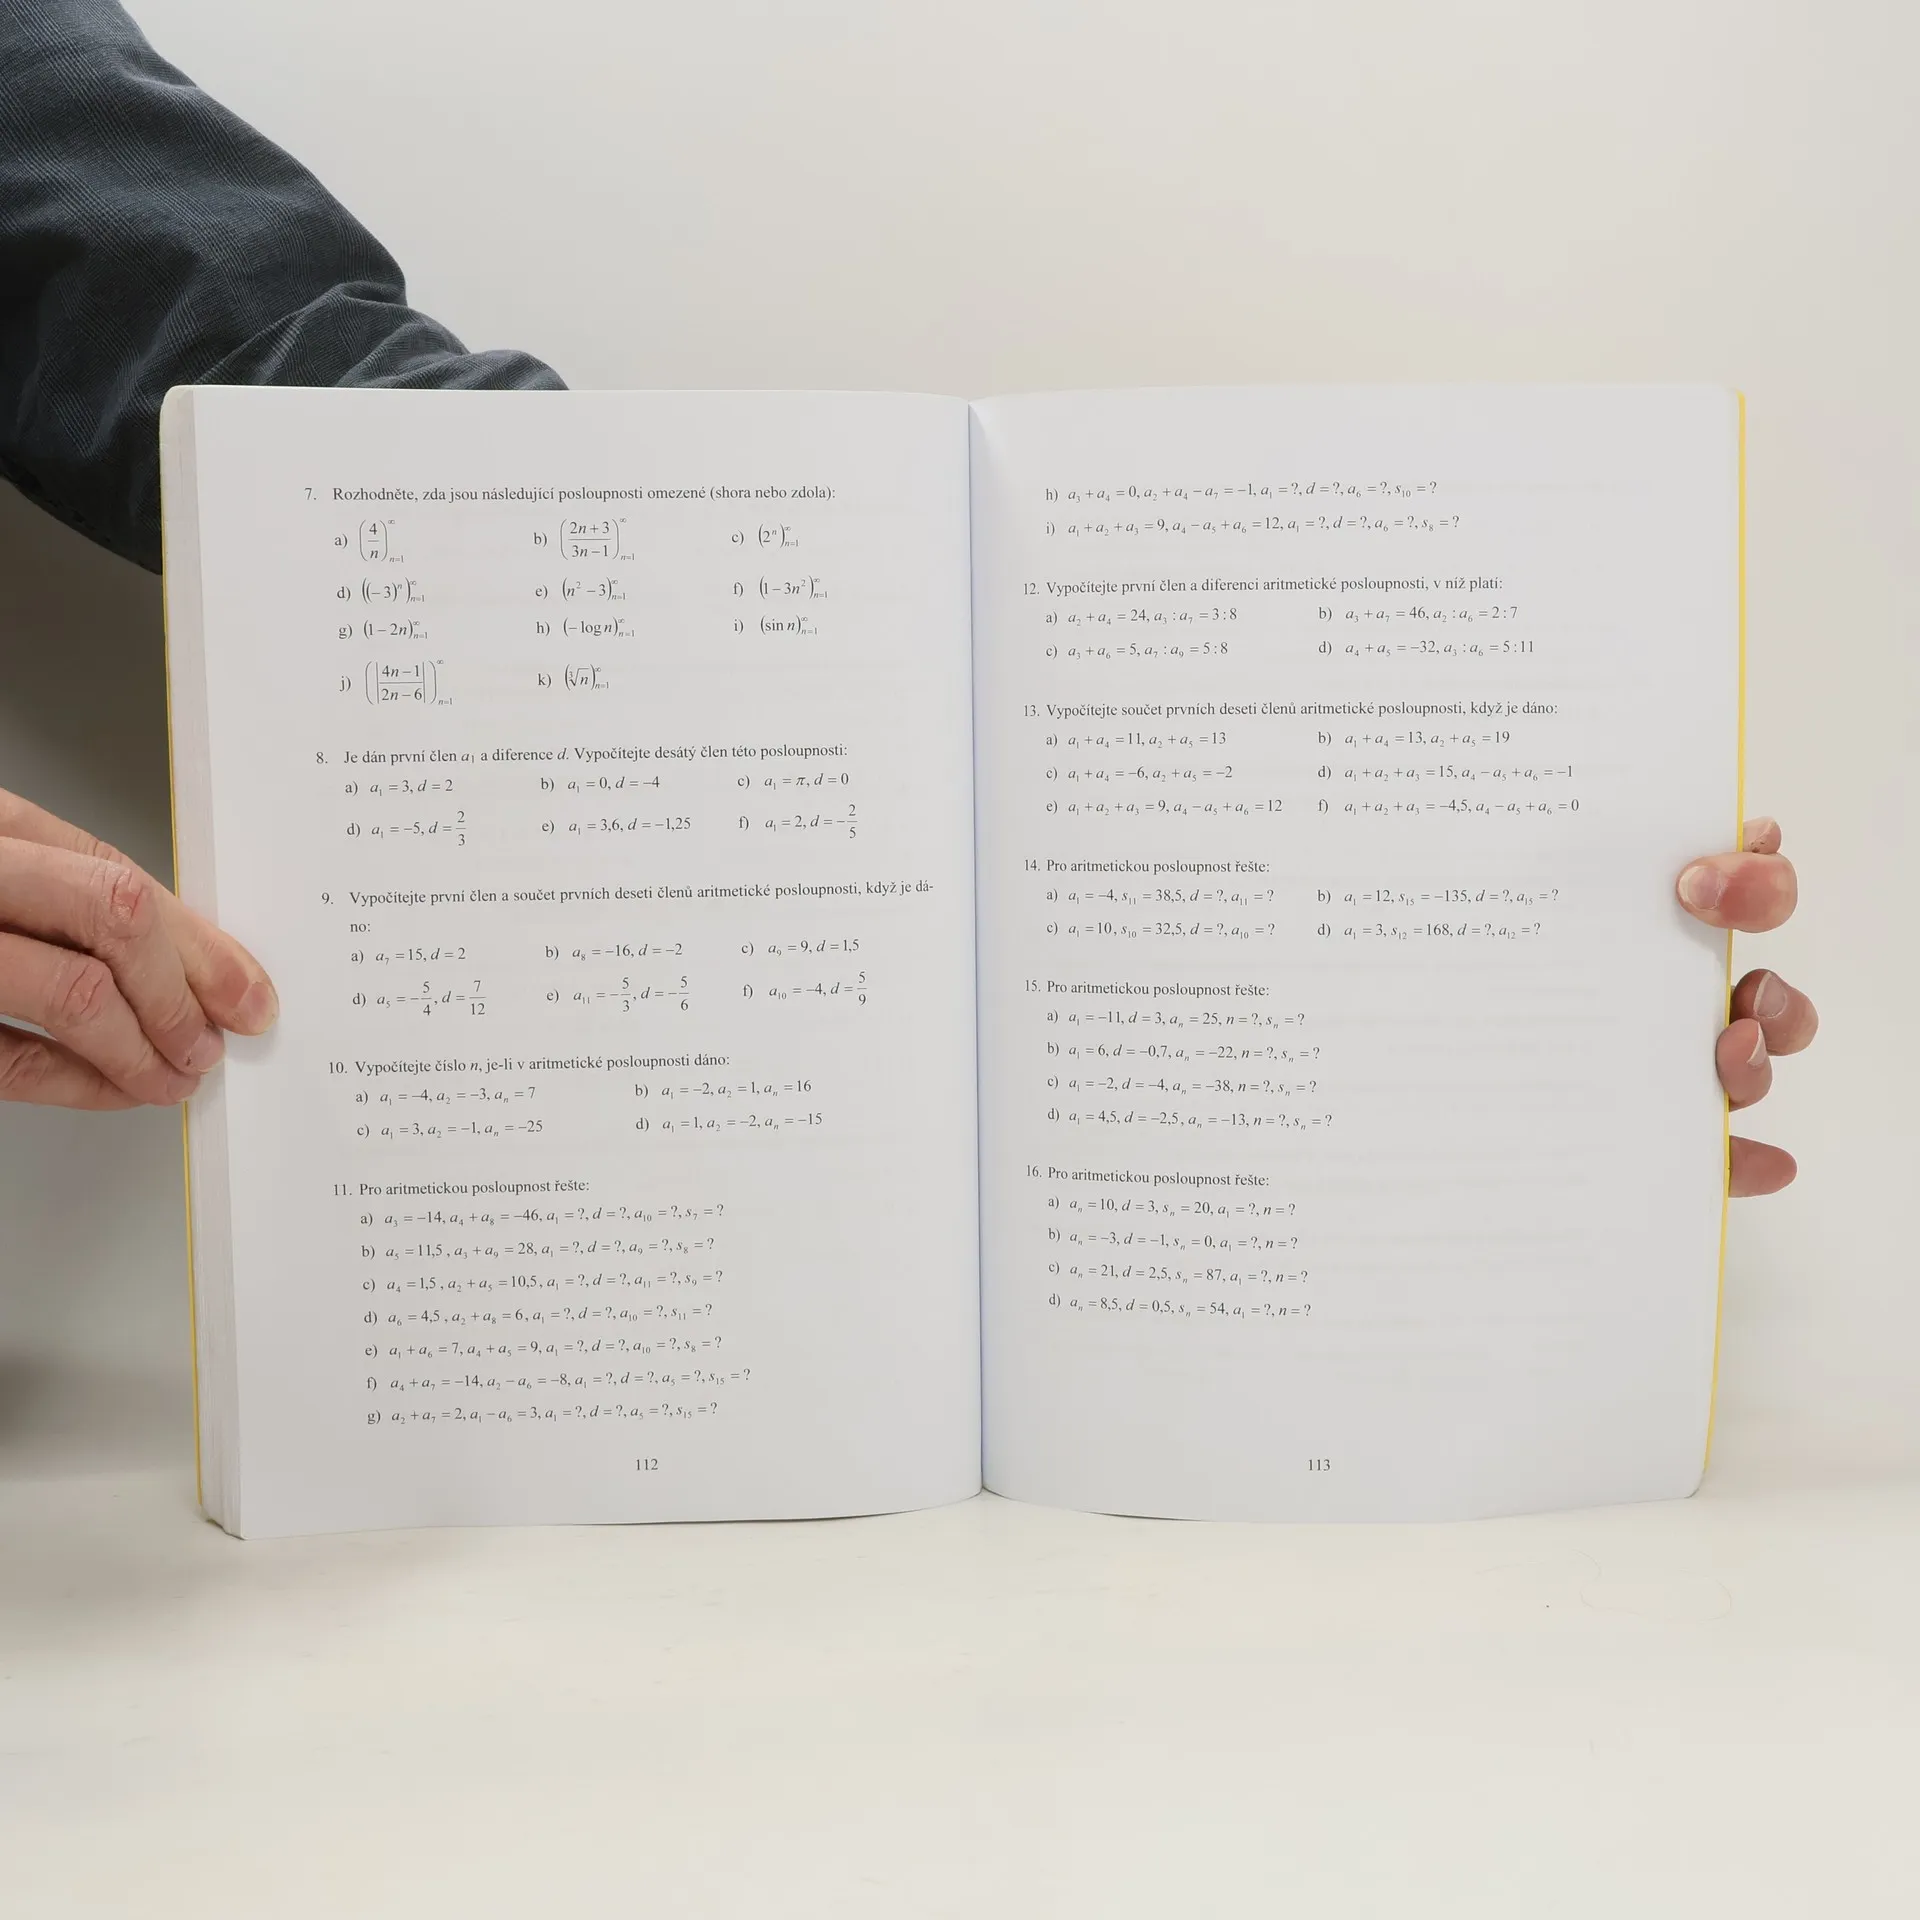 7. Rozhodněte, zda jsou následující posloupnosti omezené (shora nebo zdola):
a) (4/n)_{n=1}^∞ b) ((2n+3)/(3n−1))_{n=1}^∞ c) (2^n)_{n=1}^∞
d) ((−3)^n)_{n=1}^∞ e) (n²−3)_{n=1}^∞ f) (1−3n²)_{n=1}^∞
g) (1−2n)_{n=1}^∞ h) (−log n)_{n=1}^∞ i) (sin n)_{n=1}^∞
j) (|(4n−1)/(2n−6)|)_{n=1}^∞ k) (∛n)_{n=1}^∞
8. Je dán první člen a₁ a diference d. Vypočítejte desátý člen této posloupnosti:
a) a₁ = 3, d = 2 b) a₁ = 0, d = −4 c) a₁ = π, d = 0
d) a₁ = −5, d = 2/3 e) a₁ = 3,6, d = −1,25 f) a₁ = 2, d = −2/5
9. Vypočítejte první člen a součet prvních deseti členů aritmetické posloupnosti, když je dá-
no:
a) a₇ = 15, d = 2 b) a₈ = −16, d = −2 c) a₉ = 9, d = 1,5
d) a₅ = −5/4, d = 7/12 e) a₁₁ = −5/3, d = −5/6 f) a₁₀ = −4, d = 5/9
10. Vypočítejte číslo n, je-li v aritmetické posloupnosti dáno:
a) a₁ = −4, a₂ = −3, aₙ = 7 b) a₁ = −2, a₂ = 1, aₙ = 16
c) a₁ = 3, a₂ = −1, aₙ = −25 d) a₁ = 1, a₂ = −2, aₙ = −15
11. Pro aritmetickou posloupnost řešte:
a) a₃ = −14, a₄ + a₈ = −46, a₁ = ?, d = ?, a₁₀ = ?, s₇ = ?
b) a₅ = 11,5 , a₃ + a₉ = 28, a₁ = ?, d = ?, a₉ = ?, s₈ = ?
c) a₄ = 1,5 , a₂ + a₅ = 10,5, a₁ = ?, d = ?, a₁₁ = ?, s₉ = ?
d) a₆ = 4,5 , a₂ + a₈ = 6, a₁ = ?, d = ?, a₁₀ = ?, s₁₁ = ?
e) a₁ + a₆ = 7, a₄ + a₅ = 9, a₁ = ?, d = ?, a₁₀ = ?, s₈ = ?
f) a₄ + a₇ = −14, a₂ − a₆ = −8, a₁ = ?, d = ?, a₅ = ?, s₁₅ = ?
g) a₂ + a₇ = 2, a₁ − a₆ = 3, a₁ = ?, d = ?, a₅ = ?, s₁₅ = ?
112
h) a₃ + a₄ = 0, a₂ + a₄ − a₇ = −1, a₁ = ?, d = ?, a₆ = ?, s₁₀ = ?
i) a₁ + a₂ + a₃ = 9, a₄ − a₅ + a₆ = 12, a₁ = ?, d = ?, a₆ = ?, s₈ = ?
12. Vypočítejte první člen a diferenci aritmetické posloupnosti, v níž platí:
a) a₂ + a₄ = 24, a₃ : a₇ = 3 : 8 b) a₃ + a₇ = 46, a₂ : a₆ = 2 : 7
c) a₃ + a₆ = 5, a₇ : a₉ = 5 : 8 d) a₄ + a₅ = −32, a₃ : a₆ = 5 : 11
13. Vypočítejte součet prvních deseti členů aritmetické posloupnosti, když je dáno:
a) a₁ + a₄ = 11, a₂ + a₅ = 13 b) a₁ + a₄ = 13, a₂ + a₅ = 19
c) a₁ + a₄ = −6, a₂ + a₅ = −2 d) a₁ + a₂ + a₃ = 15, a₄ − a₅ + a₆ = −1
e) a₁ + a₂ + a₃ = 9, a₄ − a₅ + a₆ = 12 f) a₁ + a₂ + a₃ = −4,5, a₄ − a₅ + a₆ = 0
14. Pro aritmetickou posloupnost řešte:
a) a₁ = −4, s₁₁ = 38,5, d = ?, a₁₁ = ? b) a₁ = 12, s₁₅ = −135, d = ?, a₁₅ = ?
c) a₁ = 10, s₁₀ = 32,5, d = ?, a₁₀ = ? d) a₁ = 3, s₁₂ = 168, d = ?, a₁₂ = ?
15. Pro aritmetickou posloupnost řešte:
a) a₁ = −11, d = 3, aₙ = 25, n = ?, sₙ = ?
b) a₁ = 6, d = −0,7, aₙ = −22, n = ?, sₙ = ?
c) a₁ = −2, d = −4, aₙ = −38, n = ?, sₙ = ?
d) a₁ = 4,5, d = −2,5, aₙ = −13, n = ?, sₙ = ?
16. Pro aritmetickou posloupnost řešte:
a) aₙ = 10, d = 3, sₙ = 20, a₁ = ?, n = ?
b) aₙ = −3, d = −1, sₙ = 0, a₁ = ?, n = ?
c) aₙ = 21, d = 2,5, sₙ = 87, a₁ = ?, n = ?
d) aₙ = 8,5, d = 0,5, sₙ = 54, a₁ = ?, n = ?
113